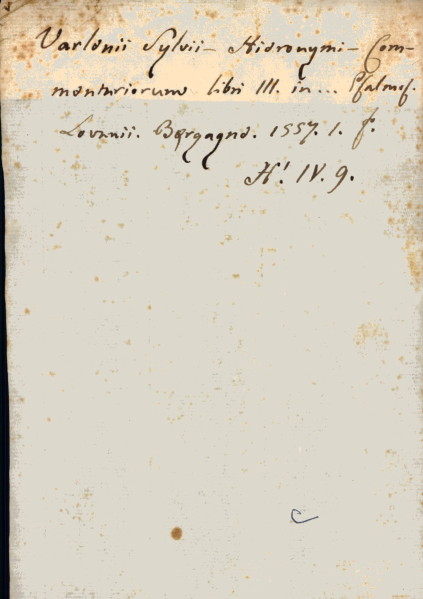 Varlenii Sylvii - Hieronymi - Com-
mentariorum libri III. in ... Psalmos.
Lovanii. Bergagno. 1557. 1. f.
H! IV. 9.
c